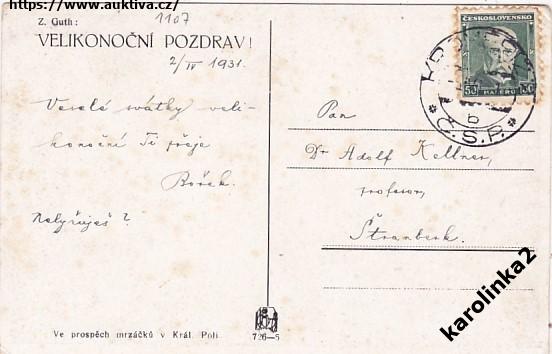 https://www.auktiva.cz/
1107
Z. Guth:
VELIKONOČNÍ POZDRAV!
2/IV 1931.
Veselé svátky veli-
konoční Ti přeje
Bořek.
Nelyžuješ?
ČESKOSLOVENSKO
50 HALÉŘŮ 50
6
* Č.S.P. *
Pan
Dr Adolf Kellner,
profesor,
Štramberk.
726—5
Ve prospěch mrzáčků v Král. Poli
karolinka2